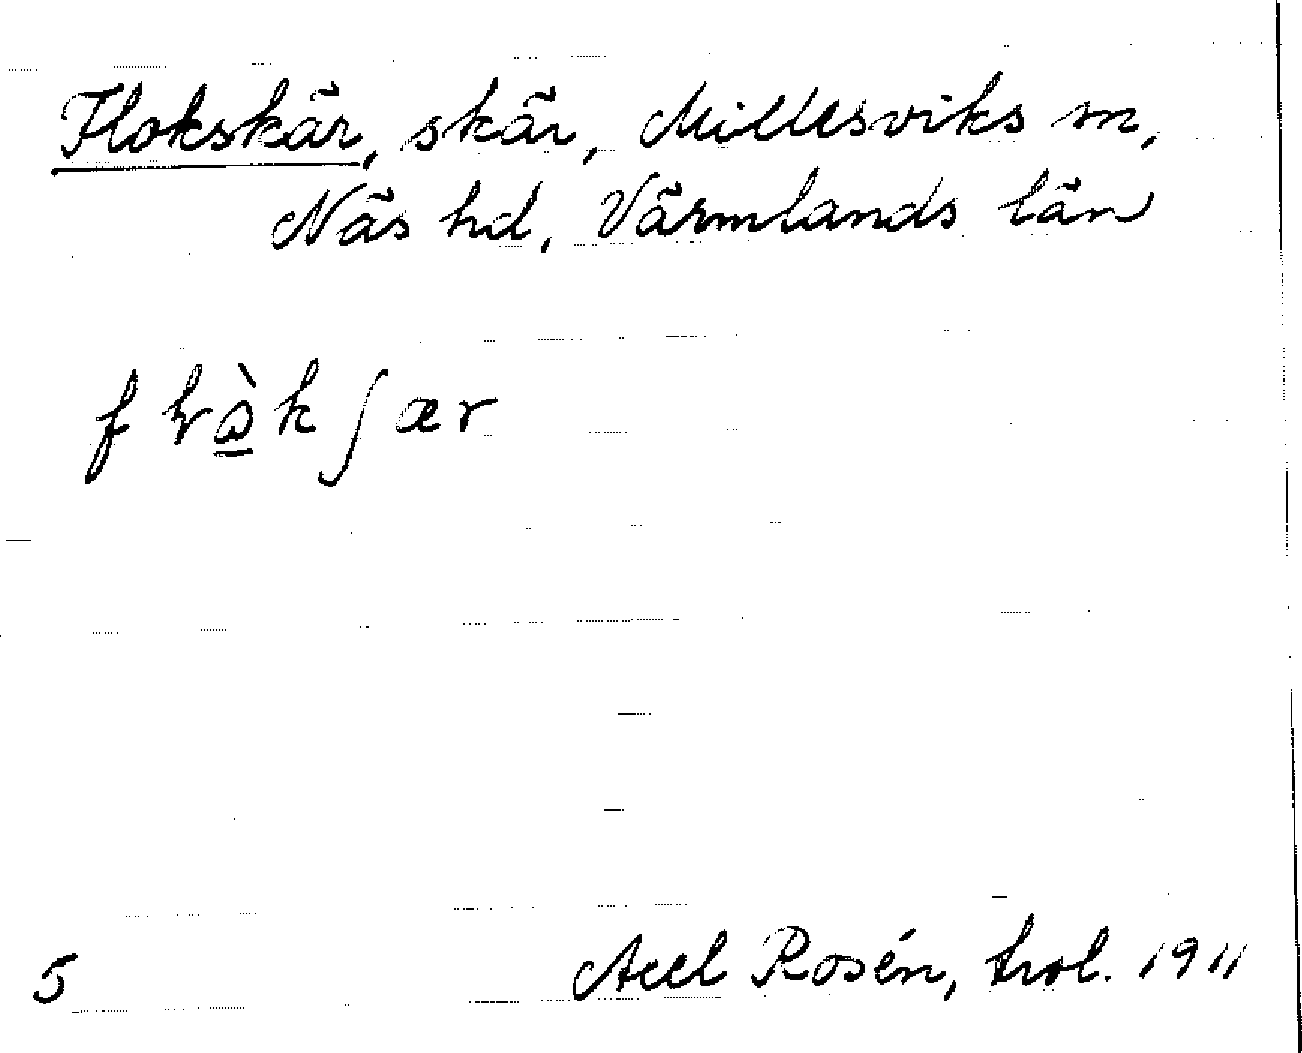 Flokskär, skär, Millesviks sn,
Näs hd, Värmlands län
fɽò̲kʃær
5
Axel Rosén, trol. 1911